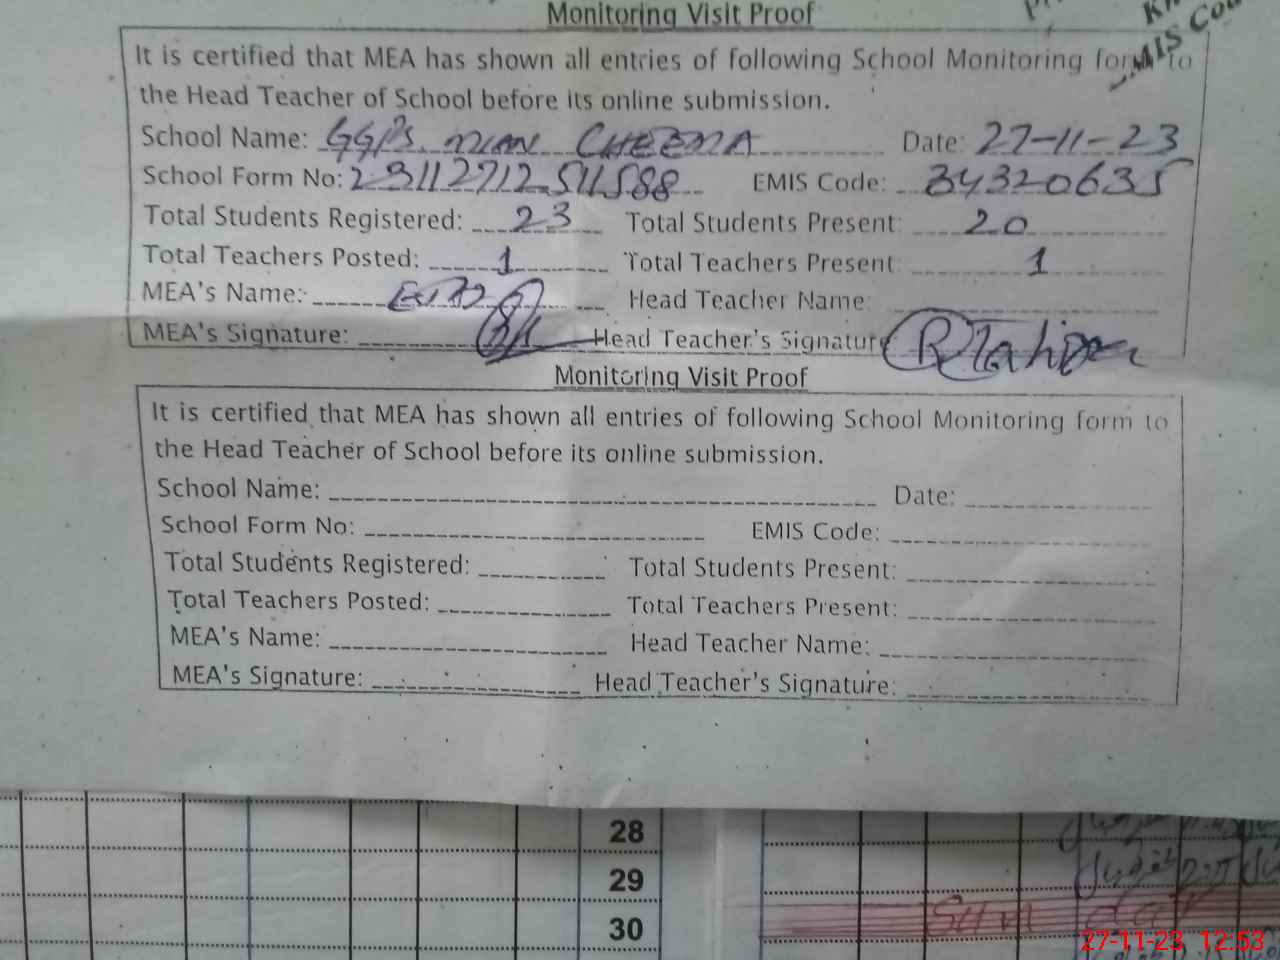 Monitoring Visit Proof
MIS Cou
It is certified that MEA has shown all entries of following School Monitoring form to
the Head Teacher of School before its online submission.
School Name: GGPS MIAN CHEEMA Date: 27-11-23
School Form No: 23112712511588 EMIS Code: 34320635
Total Students Registered: 23 Total Students Present: 20
Total Teachers Posted: 1 Total Teachers Present: 1
MEA's Name: Head Teacher Name:
MEA's Signature: Head Teacher's Signature
Monitoring Visit Proof
It is certified that MEA has shown all entries of following School Monitoring form to
the Head Teacher of School before its online submission.
School Name: Date:
School Form No: EMIS Code:
Total Students Registered: Total Students Present:
Total Teachers Posted: Total Teachers Present:
MEA's Name: Head Teacher Name:
MEA's Signature: Head Teacher's Signature:
28
29
30
27-11-23 12:53